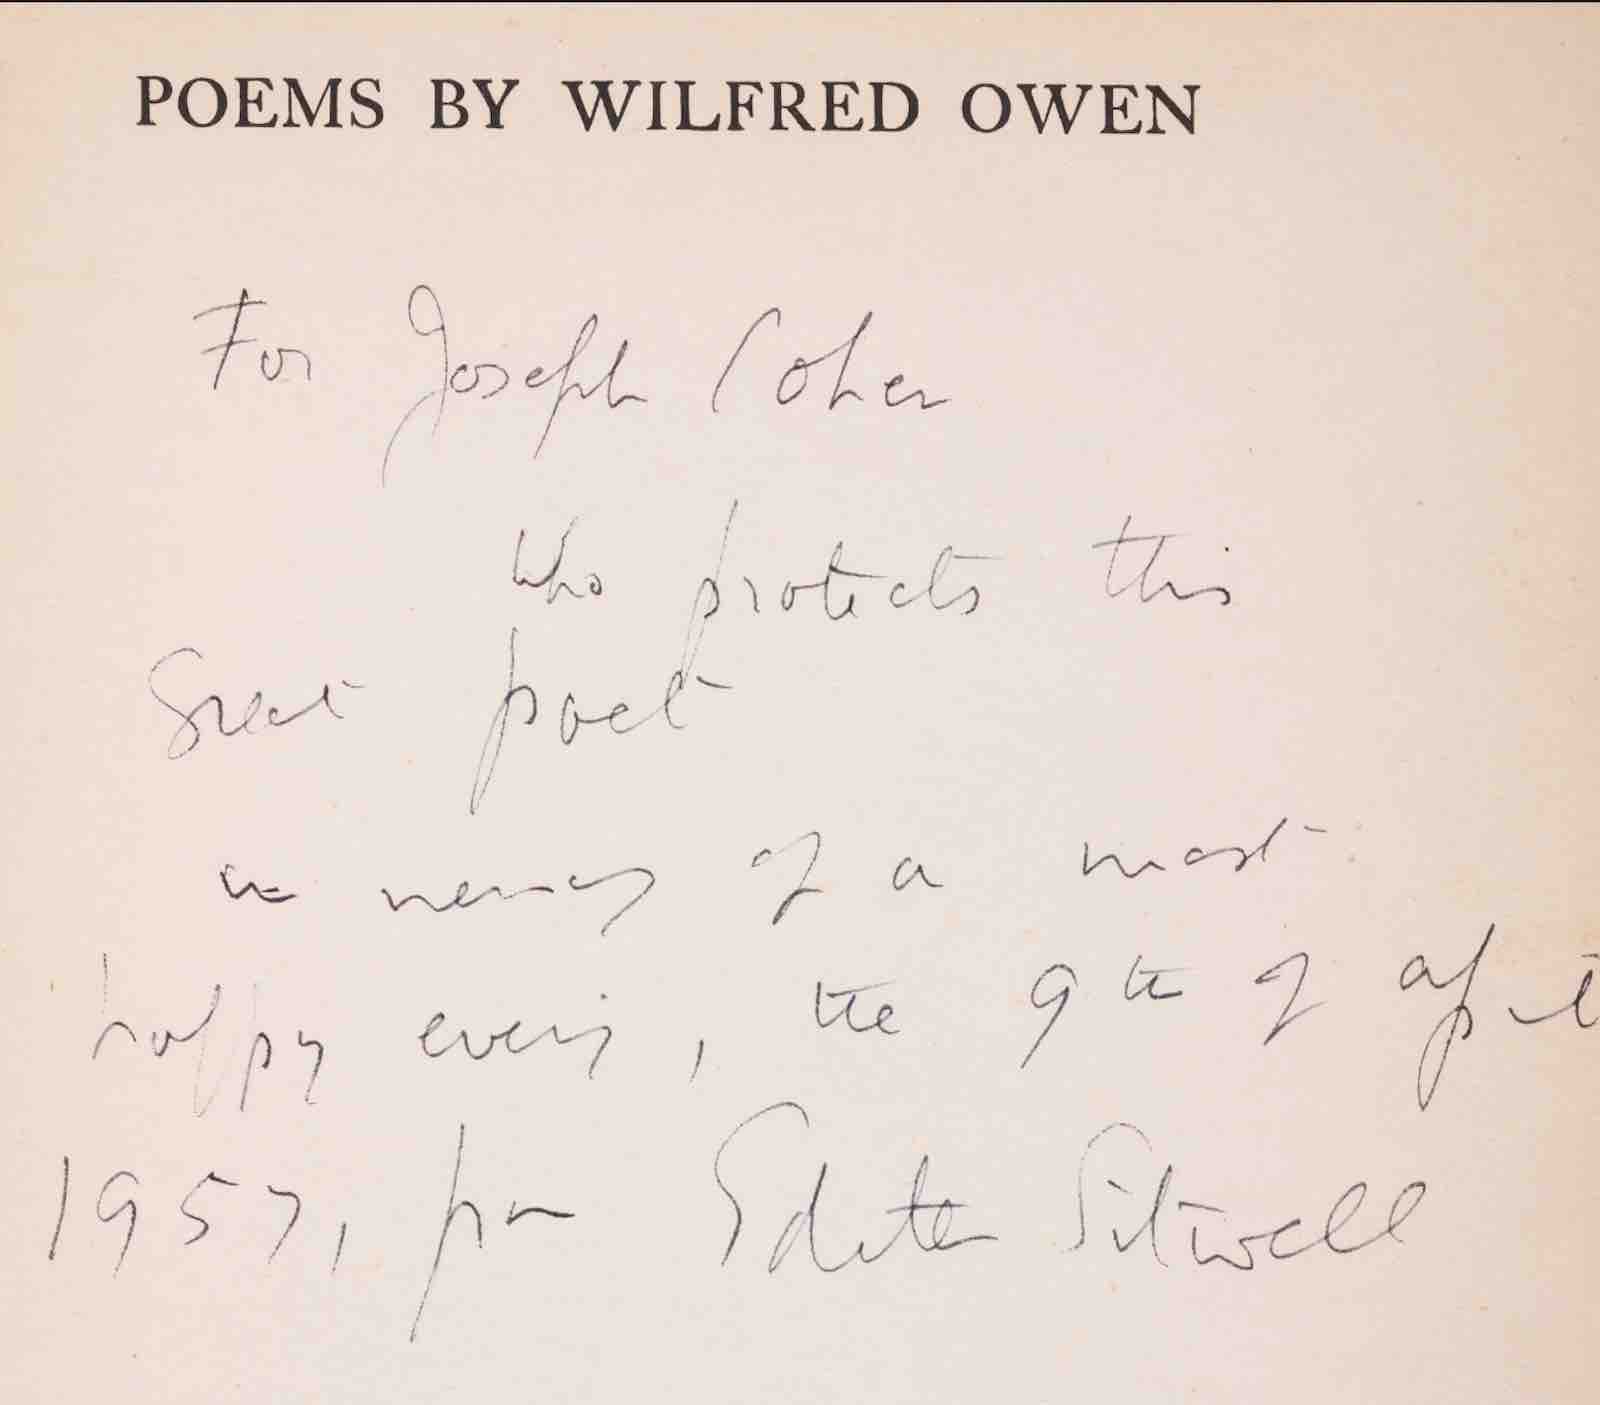 POEMS BY WILFRED OWEN
For Joseph Cohen
who protects this
Great poet
in memory of a most
happy evening, the 9th of April
1957, from Edith Sitwell